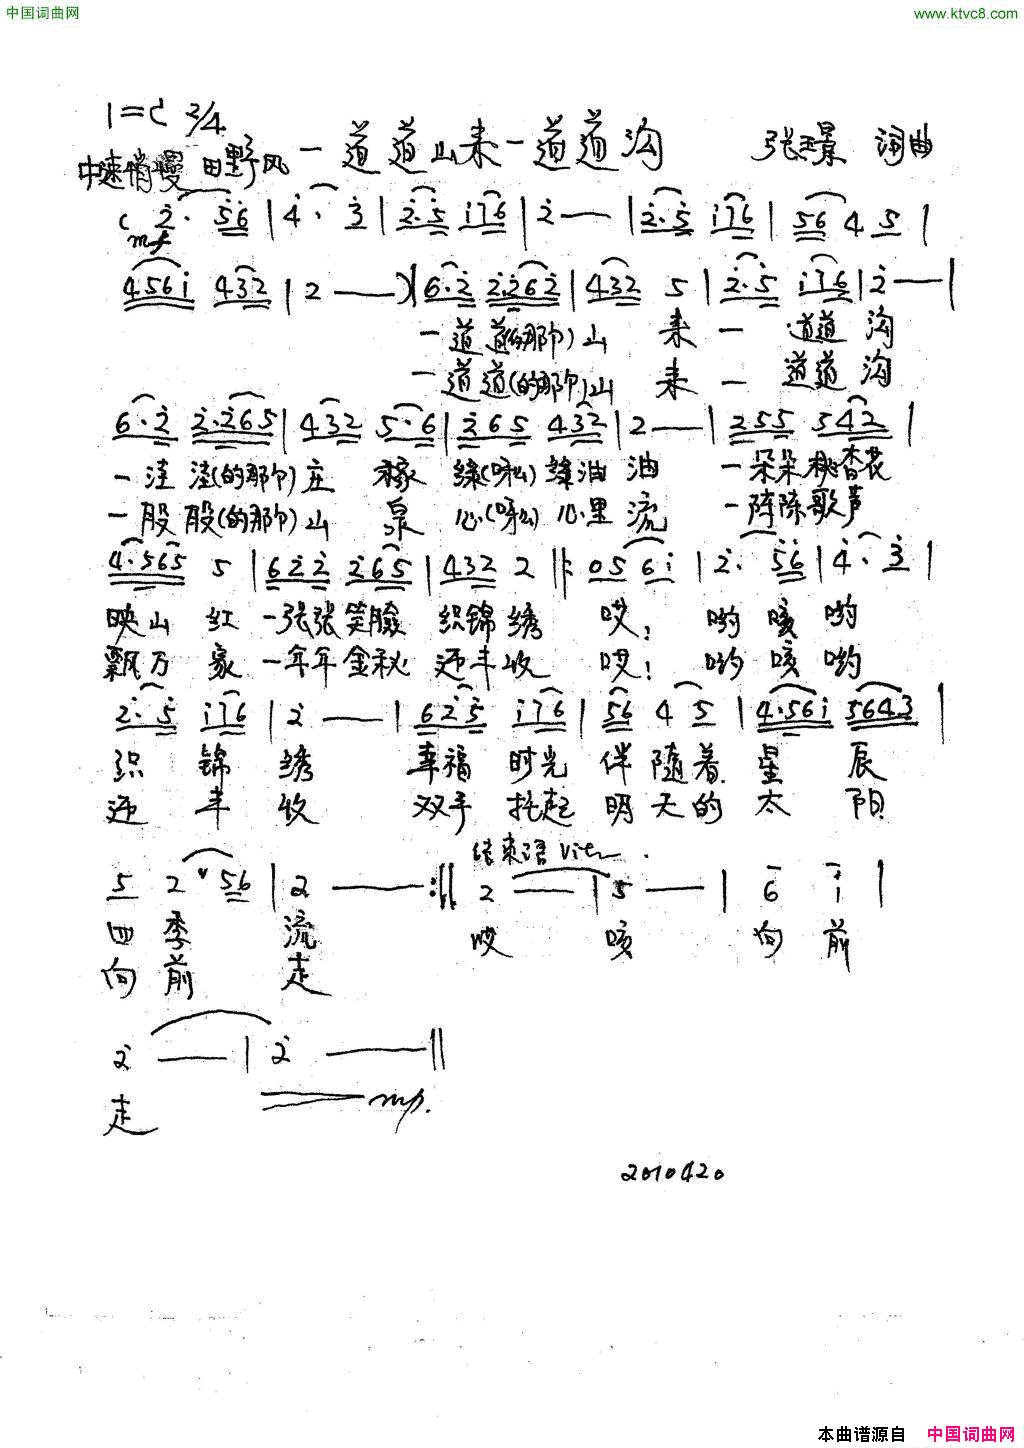 中国词曲网
www.ktvc8.com
1=C 2/4
一道道山来一道道沟
张璟 词曲
中速稍慢 田野风
( 2̇· 5̇6̇ | 4̇· 3̇ | 2̇·5̇ i76 | 2̇ — | 2̇·5̇ i76 | 56 4 5 |
mf
4561̇ 432 | 2 — ) | 6·2̇ 2̇·2̇62̇ | 432 5 | 2̇·5 i76 | 2̇ — |
一道道(的那个)山 来 一 道道 沟
一道道(的那个)山 来 一 道道 沟
6·2̇ 2̇·2̇65 | 432 5·6 | 2̇65 432 | 2 — | 255 542 |
一洼洼(的那个)庄 稼 绿(呀么)绿油油 一朵朵桃杏花
一股股(的那个)山 泉 心(呀么)心里流 一阵阵歌声
4·565 5 | 62̇2̇ 2̇65 | 432 2 ‖: 05 6i | 2̇· 5̇6̇ | 4̇· 3̇ |
映山 红 一张张笑脸 织锦绣 哎! 哟 咳 哟
飘万 家 一年年金秋 迎丰收 哎! 哟 咳 哟
2̇·5 i76 | 2̇ — | 62̇5 i76 | 56 4 5 | 4·56i 5643 |
织 锦 绣 幸福 时光 伴 随着 星 辰
迎 丰 收 双手 托起 明 天的 太 阳
5 2 ∨ 56 | 2 — :‖ 2 — | 5 — | 6 i |
结束语
四季 流 哎 咳 向 前
向前 走
2̇ — | 2̇ — ‖
走 mp.
2010420
本曲谱源自 中国词曲网